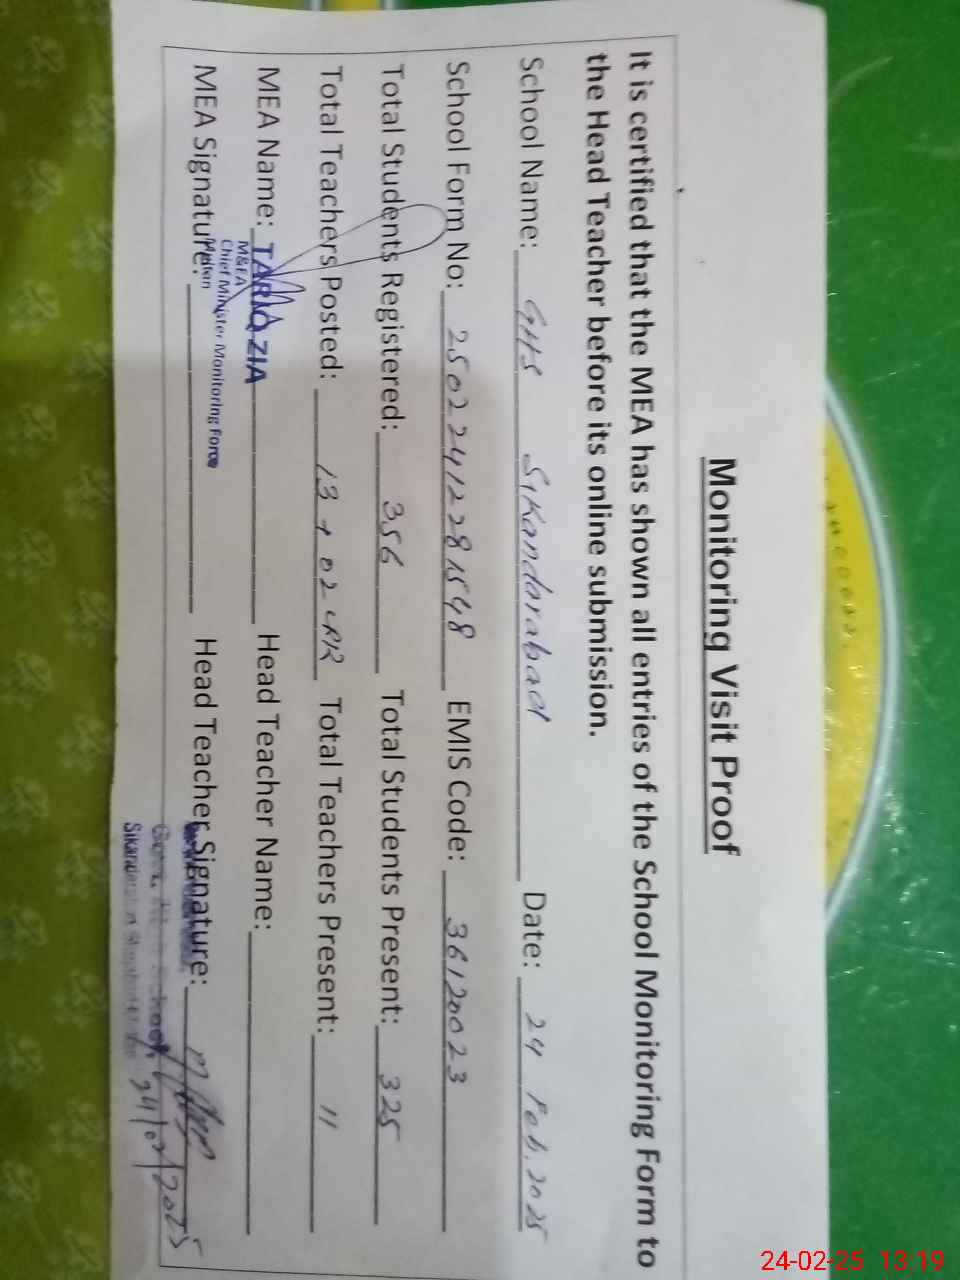 Monitoring Visit Proof
It is certified that the MEA has shown all entries of the School Monitoring Form to
the Head Teacher before its online submission.
School Name: GHS Sikandarabad Date: 24 Feb, 2025
School Form No: 25022412281548 EMIS Code: 36120023
Total Students Registered: 356 Total Students Present: 325
Total Teachers Posted: 13 + 02 Total Teachers Present: 11
MEA Name: TARIQ ZIA Head Teacher Name:
M&EA
Chief Minister Monitoring Force
Multan
MEA Signature: Head Teacher Signature:
24/02/2025
24-02-25 13:19